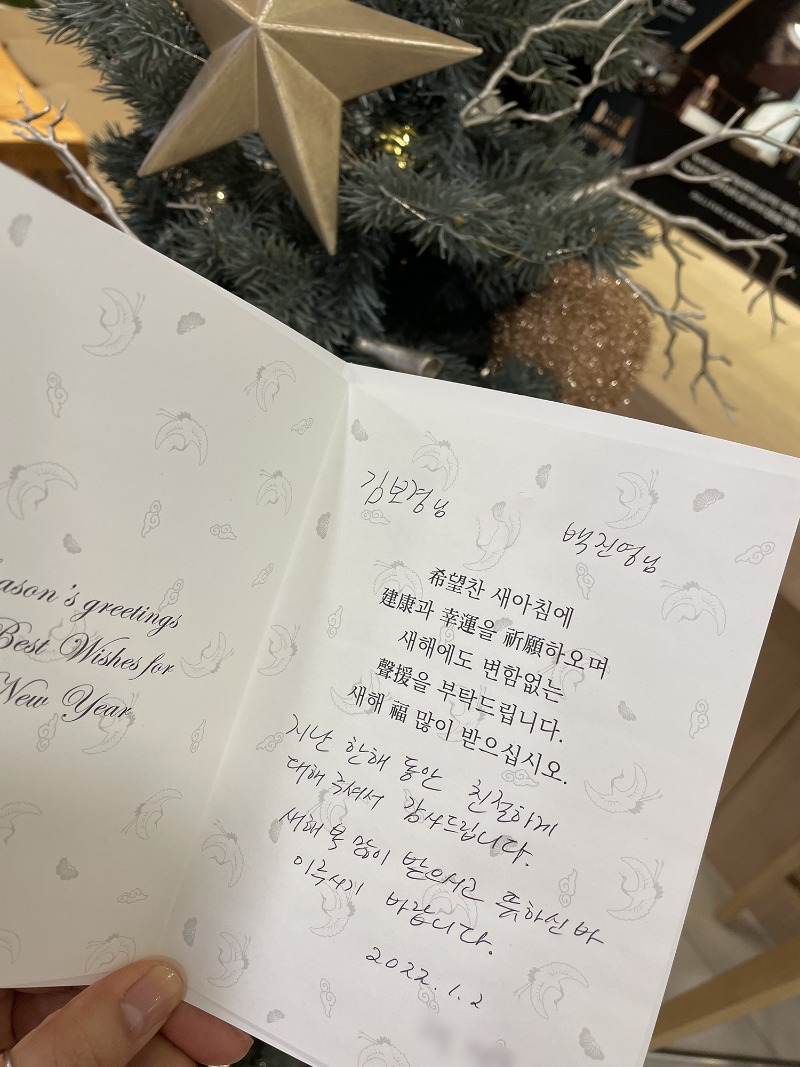 ason's greetings
Best Wishes for
New Year
김보경님
백진영님
希望찬 새아침에
建康과 幸運을 祈願하오며
새해에도 변함없는
聲援을 부탁드립니다.
새해 福 많이 받으십시오.
지난 한해 동안 친절하게
대해 주셔서 감사드립니다.
새해 복 많이 받으시고 뜻하신 바
이루시기 바랍니다.
2022. 1. 2